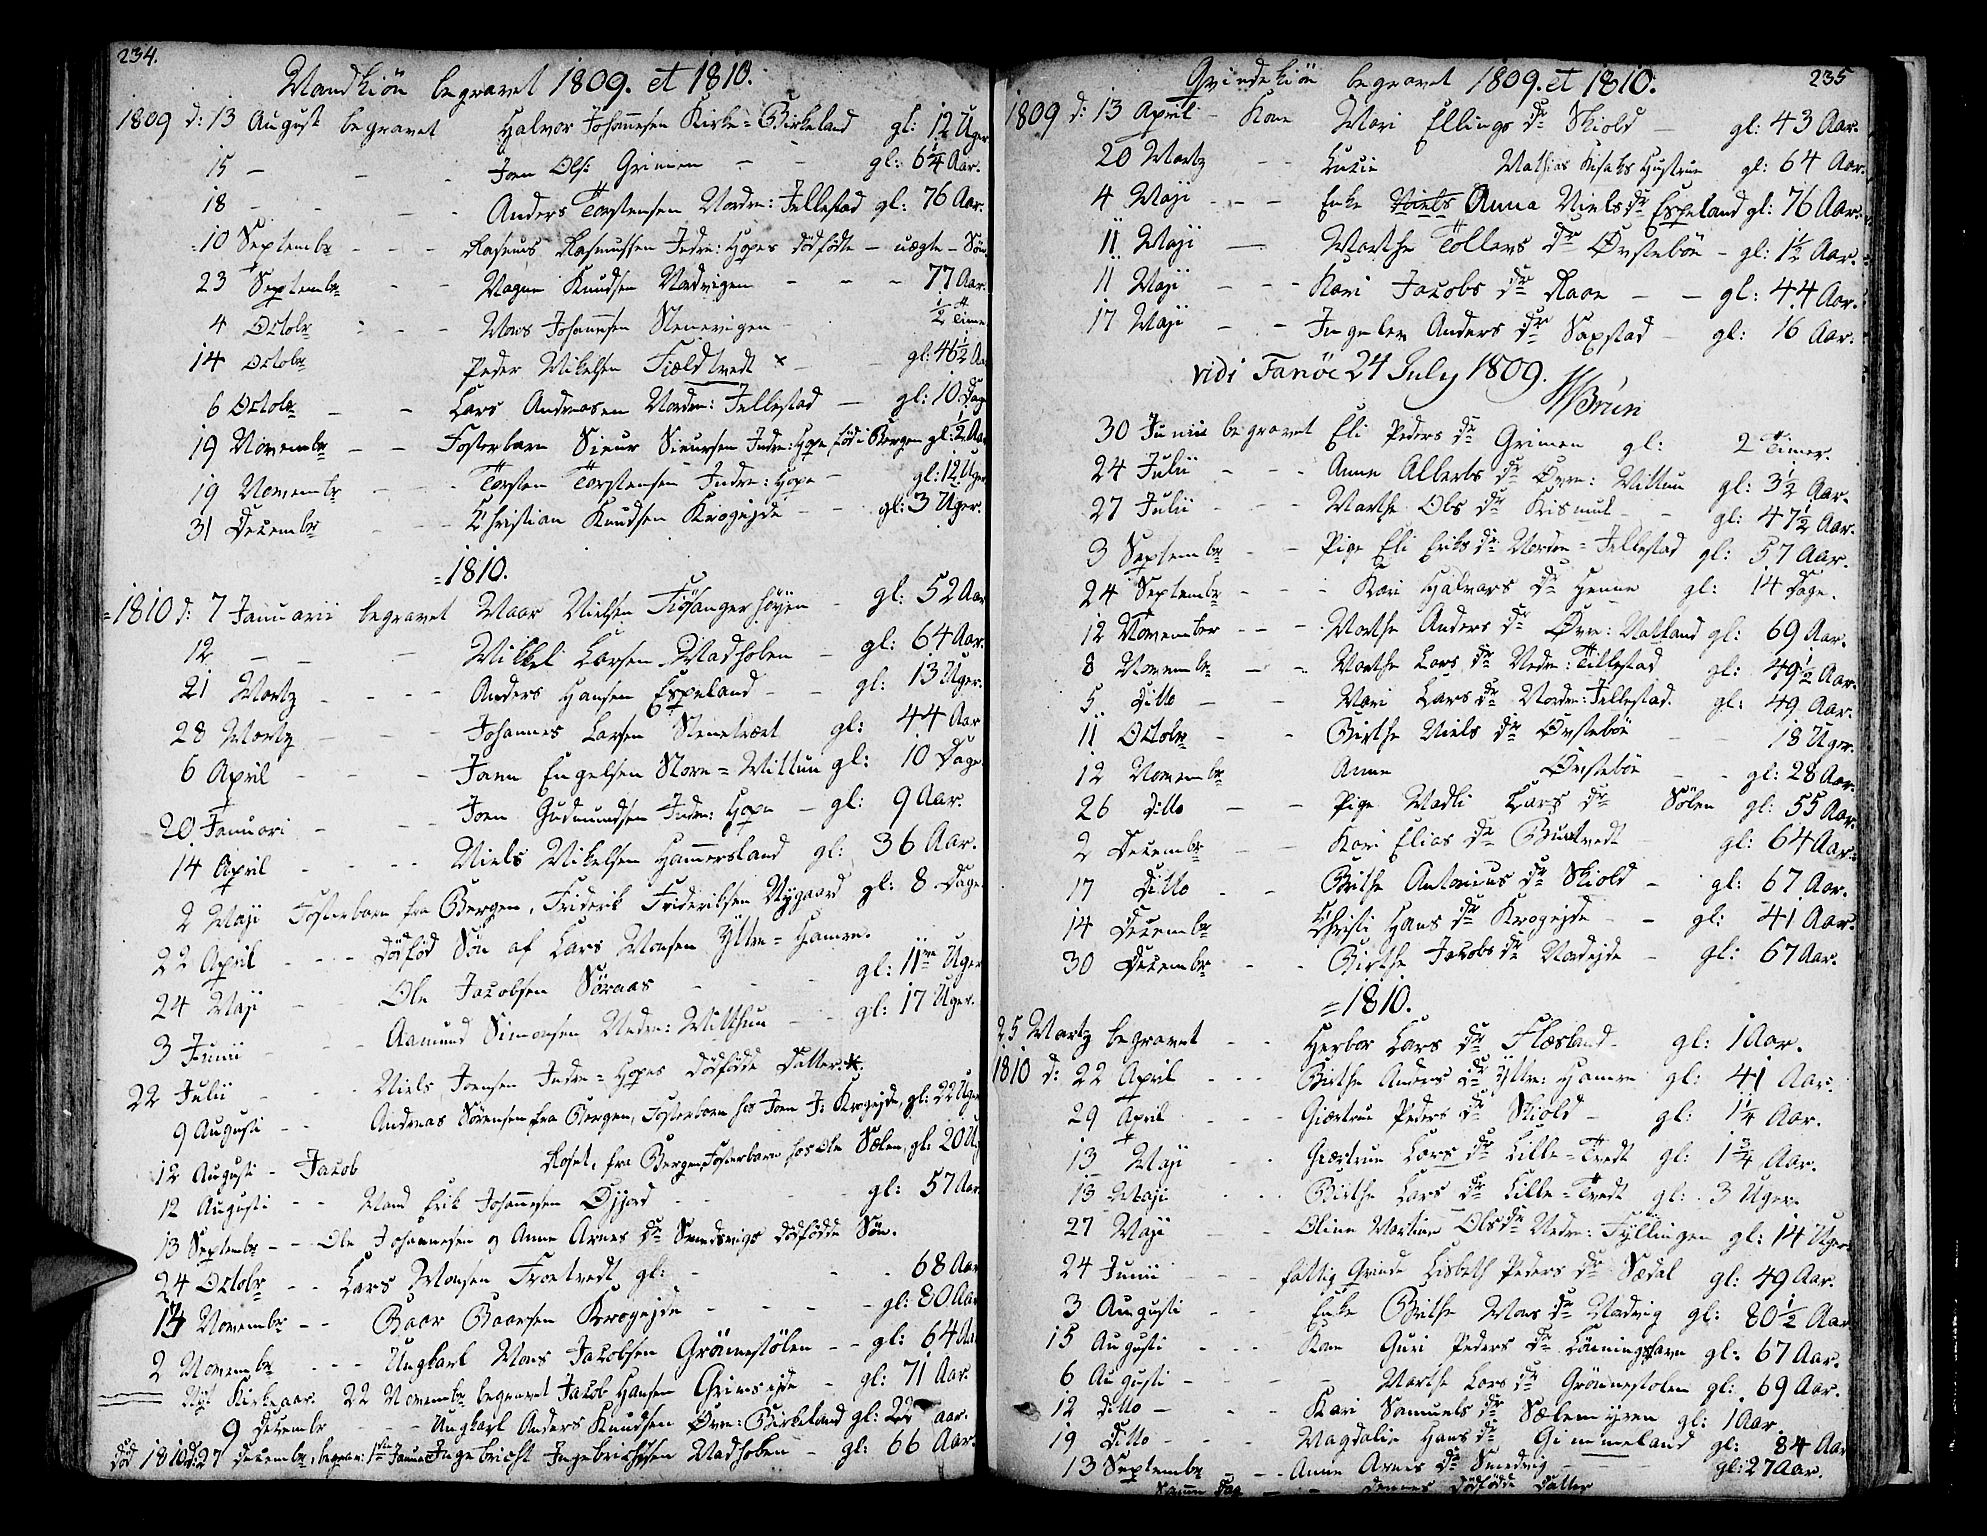 234.
Mandkiön begravet 1809. et 1810.
1809 d: 13 August begravet Halvor Johannesen Kirke=Birkeland gl: 12 Uger
15 - - - Joen Ols: Grimen - - gl: 6 1/4 Aar.
18 - - - Anders Torstensen Nordre: Jellestad gl: 76 Aar.
10 Septembr - - - Rasmus Rasmussen Indre: Hopes dödfödte - uægte - Sön
23 Septembr - - Magne Knudsen Nordvigen - - - 77 Aar.
4 Octobr - - - Mons Johannesen Stenevigen - 1/2 Time
14 Octobr Peder Mikelsen Fieldtvedt × - gl: 46 1/2 Aar
6 Octobr - - Lars Andreasen Nordre: Jellestad - gl: 10 Dage
19 Novembr - - Fosterbarn Siur Siursen Indre: Hope föd i Bergen gl: 2 1/2 Aar
19 Novembr - - - Torsten Torstensen Indre: Hope - gl: 12 Uger
31 Decembr - - - Christian Knudsen Krogejde - - gl: 3 Uger.
=1810.
=1810 d: 7 Januarii begravet Maar Nielsen Fiösangerhöyen - gl: 52 Aar
12 - - - Mikkel Larsen Madsholen - gl: 64 Aar.
21 Martz - - - Anders Hansen Espeland - - gl: 13 Uger.
28 Martz - - - Johannes Larsen Stenetræt gl: 44 Aar
6 April - - - Jann Engelsen Store=Mittun gl: 10 Dage
20 Januari - - - Joen Gudmundsen Indre: Hope - gl: 9 Aar.
14 April - - - Niels Mikelsen Hammersland gl: 36 Aar.
2 Maji Fosterbarn fra Bergen, Friderik Frideriksen Nygaard gl: 8 Dage
22 April - - - dödföd Sön af Lars Monsen Yttre=Hamre.
24 Maji - - Ole Jacobsen Söraas - - - gl: 11 Uger
3 Junii - - - Aamund Simonsen Nedre: Mitthun - - gl: 17 Uger.
22 Julii - - - Niels Joensen Indre=Hopes dödfödde Datter.*.
9 Augusti - - Andreas Sörensen fra Bergen, Fosterbarn hos Joen J: Krogejde, gl: 22 Uger
12 Augusti - Jacob Roset, fra Bergen, Fosterbarn hos Ole Sælen, gl: 20 U
12 Augusti - - Mand Erik Johannesen Öjjord - - - gl: 57 Aar
13 Septembr - - Ole Johannesen og Anne Arnes Dr Smedsvigs dödfödde Sön.
24 Octobr - - Lars Monsen Troetvedt gl: - - - 68 Aar
14 Novembr - - Baar Baarsen Krogejde - - - - gl: 80 Aar
2 Novembr - - - Ungkarl Mons Jacobsen Grönnestölen - - gl: 64 Aar
Nyt Kirkeaar. 22 Novembr begravet Jacob Hansen Grimsejde - gl: 71 Aar.
9 Decembr - - - Ungkarl Anders Knudsen Övre: Birkeland gl: 22 aar.
död 1810 d: 27 Decembr, begrav: 1ste Januar Ingebricht Ingebrichtsen Madsholen - gl: 66 Aar.
235
Qvindekiön begravet 1809. et 1810.
1809 d: 13 April - Kone Mari Ellings dr Skiold - gl: 43 Aar.
20 Martz - - Lucie Mathias Hustrue gl: 64 Aar.
4 Maji - - - Enke Niels Anna Niels dr Espeland gl: 76 Aar.
11 Maji - Marthe Tollevs dr Övstebön - gl: 1 1/2 Aar.
11 Maji - - - Kari Jacobs dr Raae - - gl: 44 Aar.
17 Maji - - - Ingeler Anders dr Saxstad - gl: 16 Aar.
vidi Fanöe 24 July 1809.
Brun
30 Junii begravet Eli Peders dr Grimen gl: 2 Timer.
24 Julii - - - Anne Allerts dr Övre: Mittun gl: 3 1/2 Aar.
27 Julii - - - Marthe Ols dr Krismul - - gl: 47 1/2 Aar.
3 Septembr - - Pige Eli Eriks dr Nordre=Jellestad gl: 57 Aar.
24 Septembr - - - Kari Halvors dr Henne gl: 14 Dage.
12 November - - - Marthe Anders dr Övre: Natland gl: 69 Aar.
8 Novembr - - Marthe Lars dr Nedre: Tillestad gl: 49 1/2 Aar.
5 ditto - - Mari Lars dr Nordre: Jellestad. gl: 49 Aar.
11 Octobr - - Birthe Niels dr Övstebön - - 18 Uger.
12 Novembr Anne Övstebön - - gl: 28 Aar.
26 ditto - - Pige Madli Lars dr Sölen gl: 55 Aar.
2 Decembr - - Kari Elias dr Birtvedt - gl: 64 Aar.
17 Ditto - - Brithe Antonius dr Skiold - gl: 67 Aar.
14 Decembr Christi Hans dr Krogejde - - gl: 41 Aar.
30 Decembr - - Birthe Jacobs dr Nordejde - gl: 67 Aar.
=1810.
25 Martz begravet - - Herbor Lars dr Flæsland - gl: 1 Aar.
1810 d: 22 April - - - Birthe Anders dr Yttre: Hamre gl: 41 Aar.
29 April - - - Giærtrue Peders dr Skiold - gl: 1 1/4 Aar.
13 Maji - - Giærtrue Lars dr Lille=Tvedt gl: 1 3/4 Aar.
13 Maji - - - Birthe Lars dr Lille=Tvedt gl: 3 Uger.
27 Maji - - Oline Martine Ols dr Nedre: Fyllingen gl: 14 Uger
24 Junii - - - fattig Qvinde Lisbeth Peders dr Sædal gl: 49 Aar.
3 Augusti - - Enke Brithe Mons dr Nordvig gl: 80 1/2 Aar
15 Augusti - - - Kone Guri Peders dr Löningshavn gl: 67 Aar.
6 Augusti - - - - Marthe Lars dr Grönnestolen gl: 69 Aar.
12 ditto - - - Kari Samuels dr Sælemyren gl: 1 Aar.
19 Ditto - - - Magdalie Hans dr Gimmeland gl: 84 Aar
13 Septembr - - Anne Arnes Dr Smedvig - - - gl: 27 Aar.
Samme Dag - - dennes dödfödde Datter